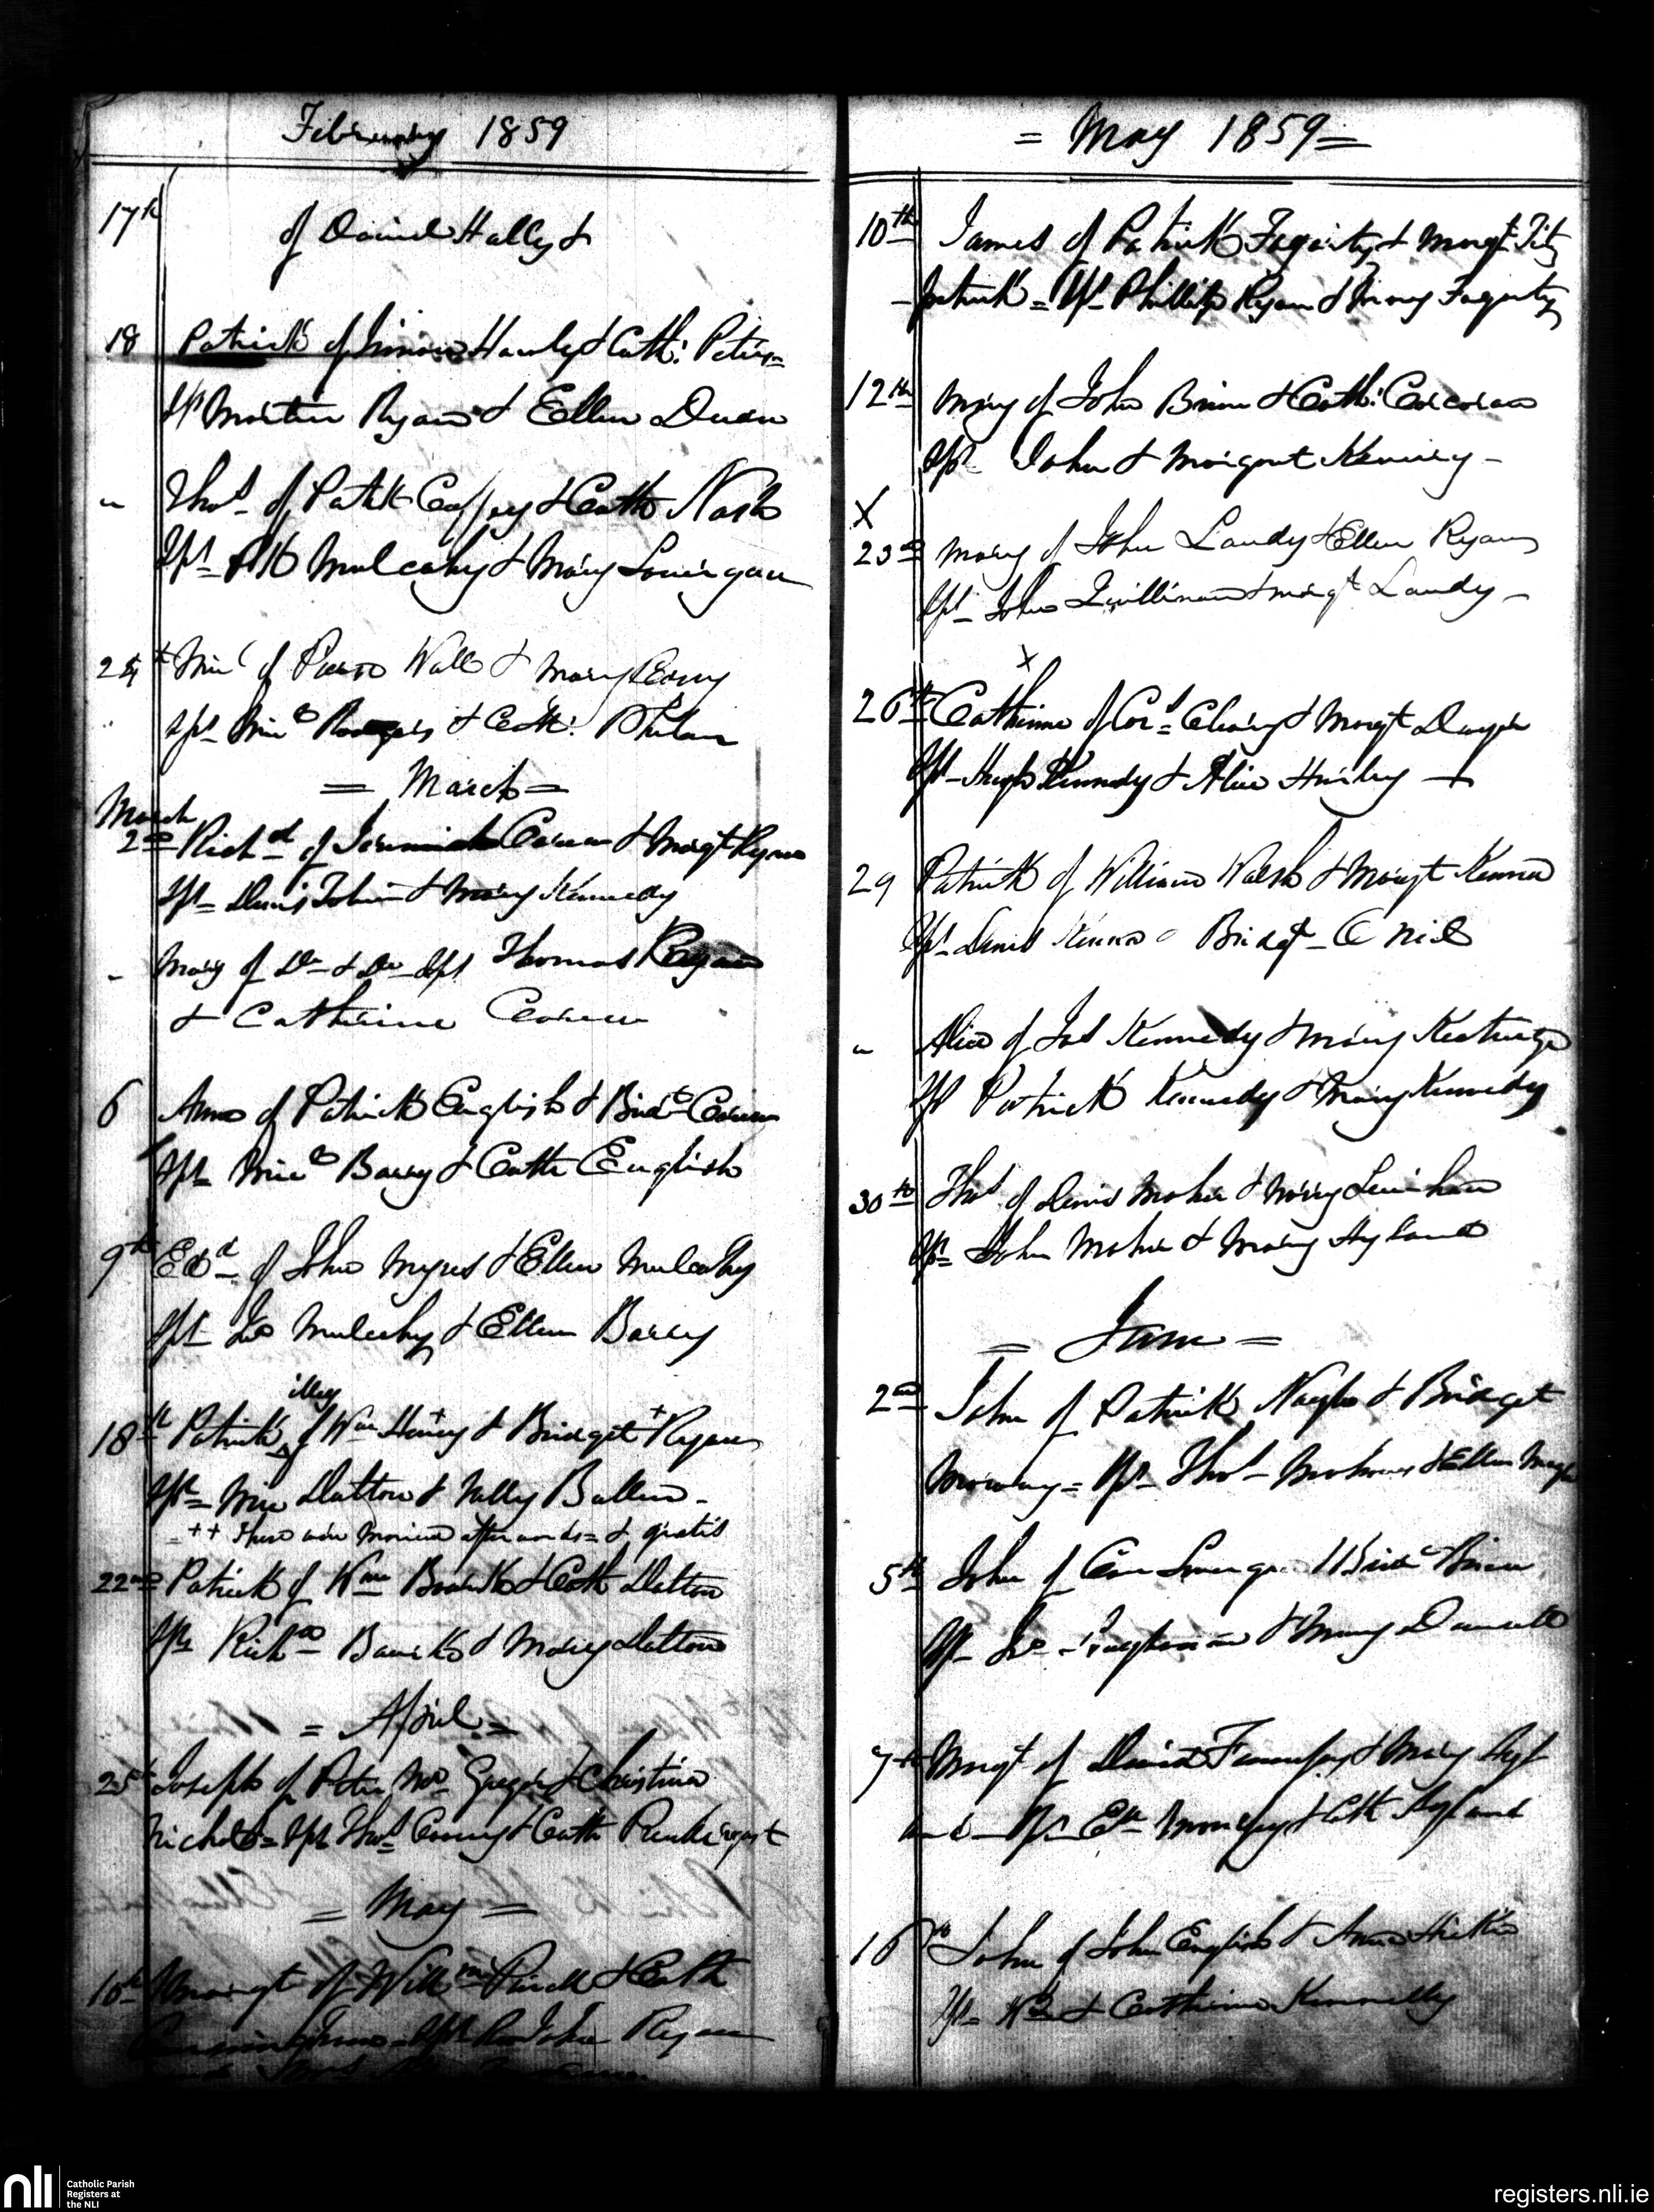 February 1859
17th
of Daniel Hally &
18 Patrick of Simon Hanly & Cath: Peters=
Sps Martin Ryan & Ellen Duan
" Thos of Patk Caffey & Cath Nash
Sps Pk Mulcahy & Mary Lonirgan
24th Mic of Pierce Wall & Mary
Sps Micl Rodgers & Cath: Phelan
= March =
March
2nd Richd of Jeremiah & Margt Ryan
Sps Denis Tobin & Mary Kennedy
" Mary of Do & Do Sps Thomas Ryan
& Catherine
6 Anne of Patrick English & Bridt
Sps Micl Barry & Cath English
9th Edd of John Myres & Ellen Mulcahy
Sps Jno Mulcahy & Ellen Barry
illeg
18th Patrick of Wm & Bridget + Ryan
Sps Mic Dalton & Nelly Bullen
= ++ These were Married afterwards = & gratis
22nd Patrick of Wm & Cath Dalton
Sps Richd & Mary Dalton
= April =
25th Joseph of Peter Mc Gregor & Christina
Nichols = Sps Thos & Cath
= May =
10th Margt of Willm Purcell & Cath
Sps John Ryan
= May 1859 =
10th James of Patrick Fogarty & Margt Fitz
-patrick = Sps Phillip Ryan & Mary Fogarty
12th Mary of John Brien & Cath: Corcoran
Sps John & Margaret Kenney -
X
23rd Mary of John Landy & Ellen Ryan
Sps John Quillinan & Margt Landy -
X
26th Catherine of Cors Cleary & Margt Dwyer
Sps Hugh Kennedy & Alice Hurley
29 Patrick of William Walsh & Margt Kenna
Sps Denis Kenna & Bridgt O Niel
" Alice of Jas Kennedy & Mary Keatinge
Sps Patrick Kennedy & Mary Kennedy
30th Thos of Denis Maher & Mary Leinhan
Sps John Maher & Mary Hyland
= June =
2nd John of Patrick Naghe & Bridget
= Sps Thos & Ellen
5th John of Con & Bridt Brien
Sps Jno & Mary
7th Margt of David & Mary Hyl
and - Sps & Cath Hyland
16th John of John English & Anne Hickie
Sps & Catherine Kennelly
nli
Catholic Parish
Registers at
the NLI
registers.nli.ie